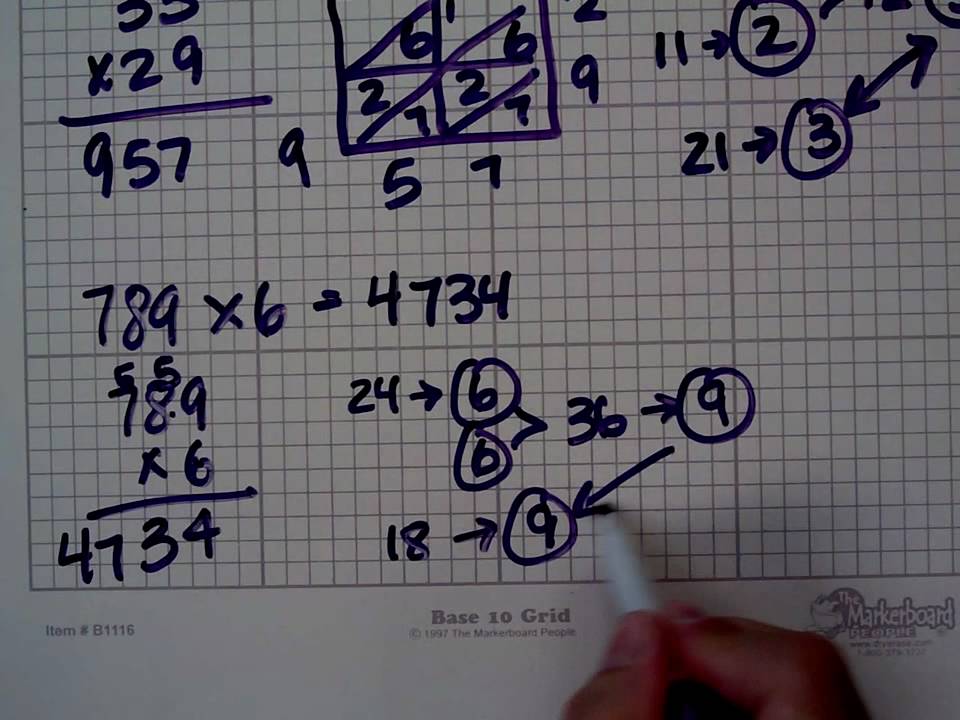 33
× 29
957
6
1
6
2
7
2
7
2
9
9
5 7
11 → 2
12
21 → 3
789 × 6 = 4734
5 5
789
× 6
4734
24 → 6
6
36 → 9
18 → 9
Item # B1116
Base 10 Grid
© 1997 The Markerboard People
The
Markerboard
PEOPLE
www.dryerase.com
1-800-379-3727